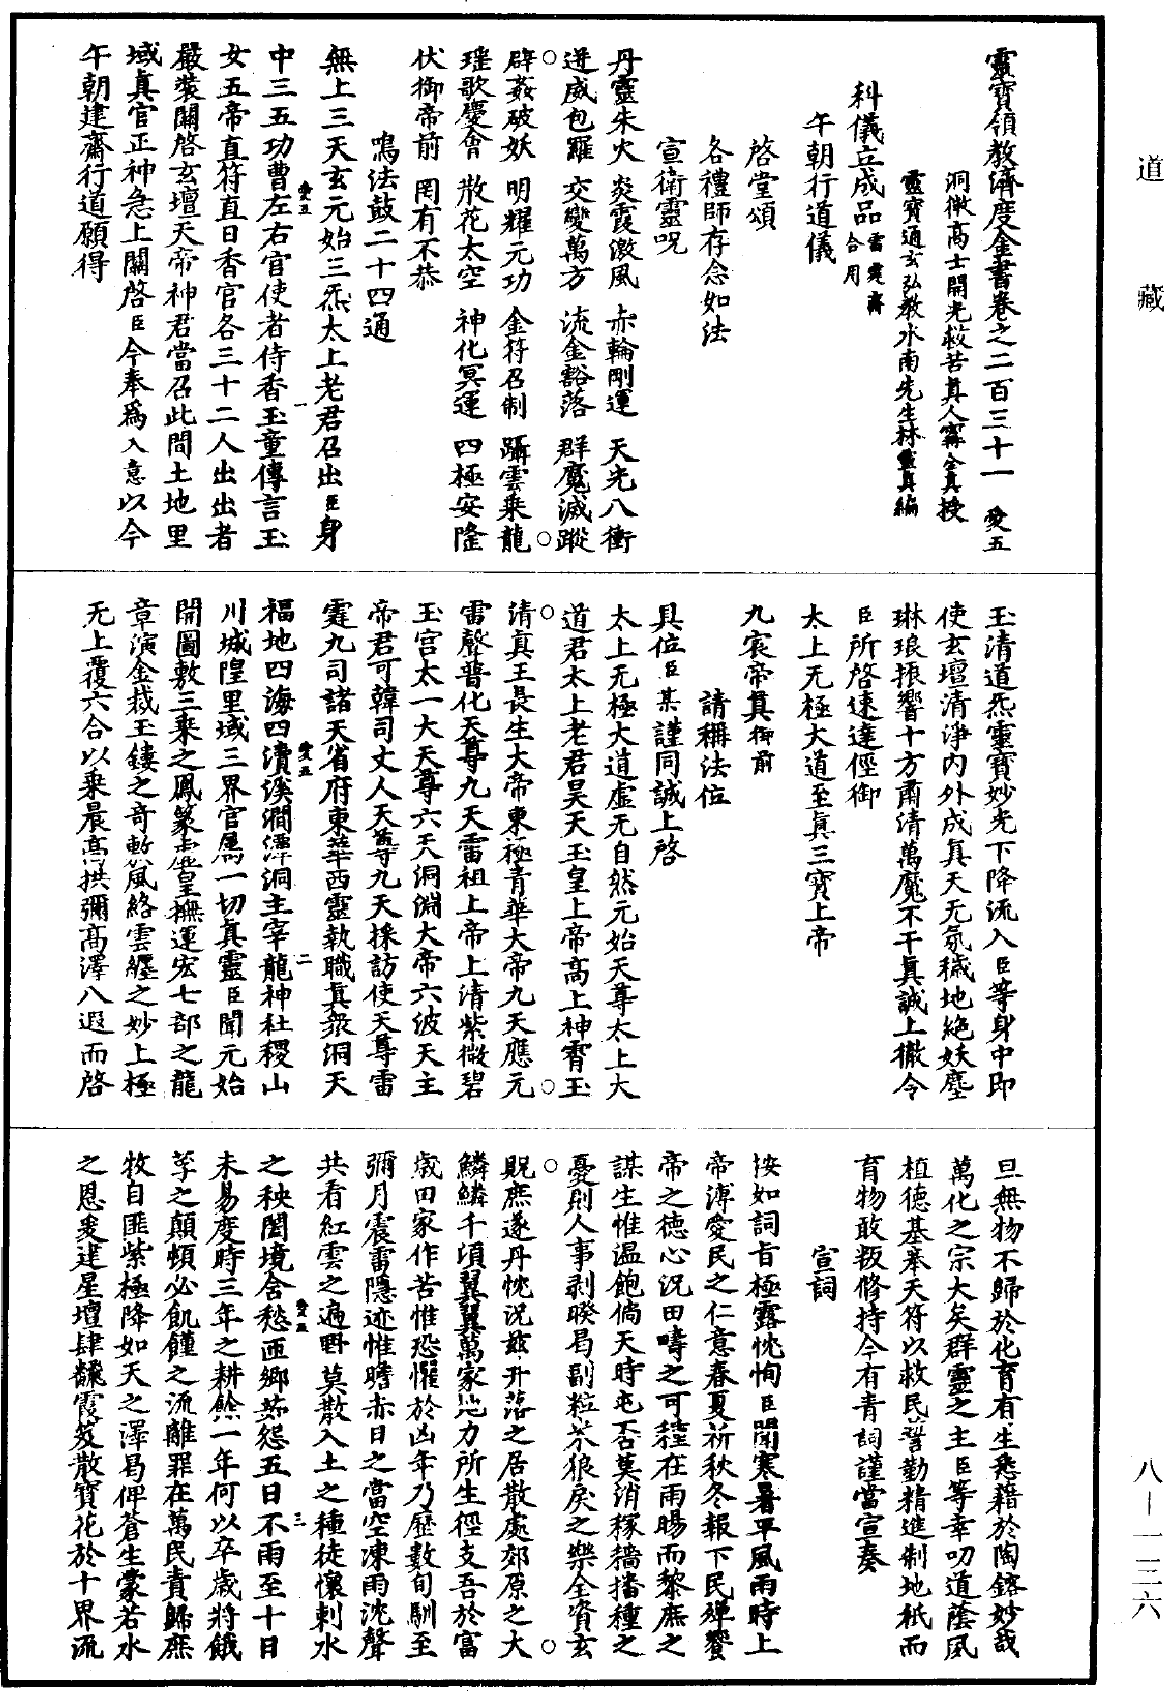 道藏
靈寶領教濟度金書卷之二百三十一 愛五
洞微高士開光救苦真人甯全真授
靈寶通玄弘教水南先生林靈真編
科儀立成品雷霆齋合用
午朝行道儀
啓堂頌
各禮師存念如法
宣衛靈呪
丹靈朱火 炎霞激風 赤輪剛運 天光八衝
迸威包羅 交變萬方 流金豁落 群魔滅蹤
辟姦破妖 明耀元功 金符召制 躡雲乘龍
瑤歌慶會 散花太空 神化冥運 四極安隆
伏御帝前 罔有不恭
鳴法鼓二十四通
無上三天玄元始三炁太上老君召出臣身
中三五功曹左右官使者侍香玉童傳言玉
女五帝直符直日香官各三十二人出出者
嚴裝關啓玄壇天帝神君當召此間土地里
域真官正神急上關啓臣今奉爲入意以今
午朝建齋行道願得
玉清道炁靈寶妙光下降流入臣等身中即
使玄壇清淨內外成真天无氛穢地絕妖塵
琳琅振響十方肅清萬魔不干真誠上徹令
臣所啓速達徑御
太上无極大道至真三寶上帝
九宸帝真御前
請稱法位
具位臣某謹同誠上啓
太上无極大道虛无自然元始天尊太上大
道君太上老君昊天玉皇上帝高上神霄玉
清真王長生大帝東極青華大帝九天應元
雷聲普化天尊九天雷祖上帝上清紫微碧
玉宮太一大天尊六天洞淵大帝六波天主
帝君可韓司丈人天尊九天採訪使天尊雷
霆九司諸天省府東華西靈執職真衆洞天
福地四海四瀆溪澗潭洞主宰龍神社稷山
川城隍里域三界官屬一切真靈臣聞元始
開圖敷三乘之鳳篆虛皇撫運宏七部之龍
章演金拔玉鏤之奇敷風絡雲纏之妙上極
无上覆六合以乘晨高拱彌高澤八遐而啓
旦無物不歸於化育有生悉藉於陶鎔妙哉
萬化之宗大矣群靈之主臣等幸叨道蔭夙
植德基奉天符以救民誓勤精進制地祇而
育物敢叛修持今有青詞謹當宣奏
宣詞
按如詞旨極露忱恂臣聞寒暑平風雨時上
帝溥愛民之仁意春夏祈秋冬報下民殫饗
帝之德心況田疇之可穫在雨暘而黎庶之
謀生惟溫飽倘天時屯否莫消稼穡播種之
憂則人事剥暌曷副粒米狼戾之樂全資玄
貺庶遂丹忱況兹升落之居散處郊原之大
鱗鱗千頃翼翼萬家地力所生徑支吾於富
歲田家作苦惟恐懼於凶年乃歷數旬馴至
彌月震雷隱迹惟瞻赤日之當空凍雨沈聲
共看紅雲之遍野莫散入土之種徒懷剌水
之秧闔境含愁匝鄉茹怨五日不雨至十日
未易度時三年之耕餘一年何以卒歲將餓
莩之顛頓必飢饉之流離罪在萬民責歸庶
牧自匪紫極降如天之澤曷俾蒼生蒙若水
之恩爰建星壇肆飜霞笈散寶花於十界流
愛五
一
愛五
二
愛五
三
八—一三六